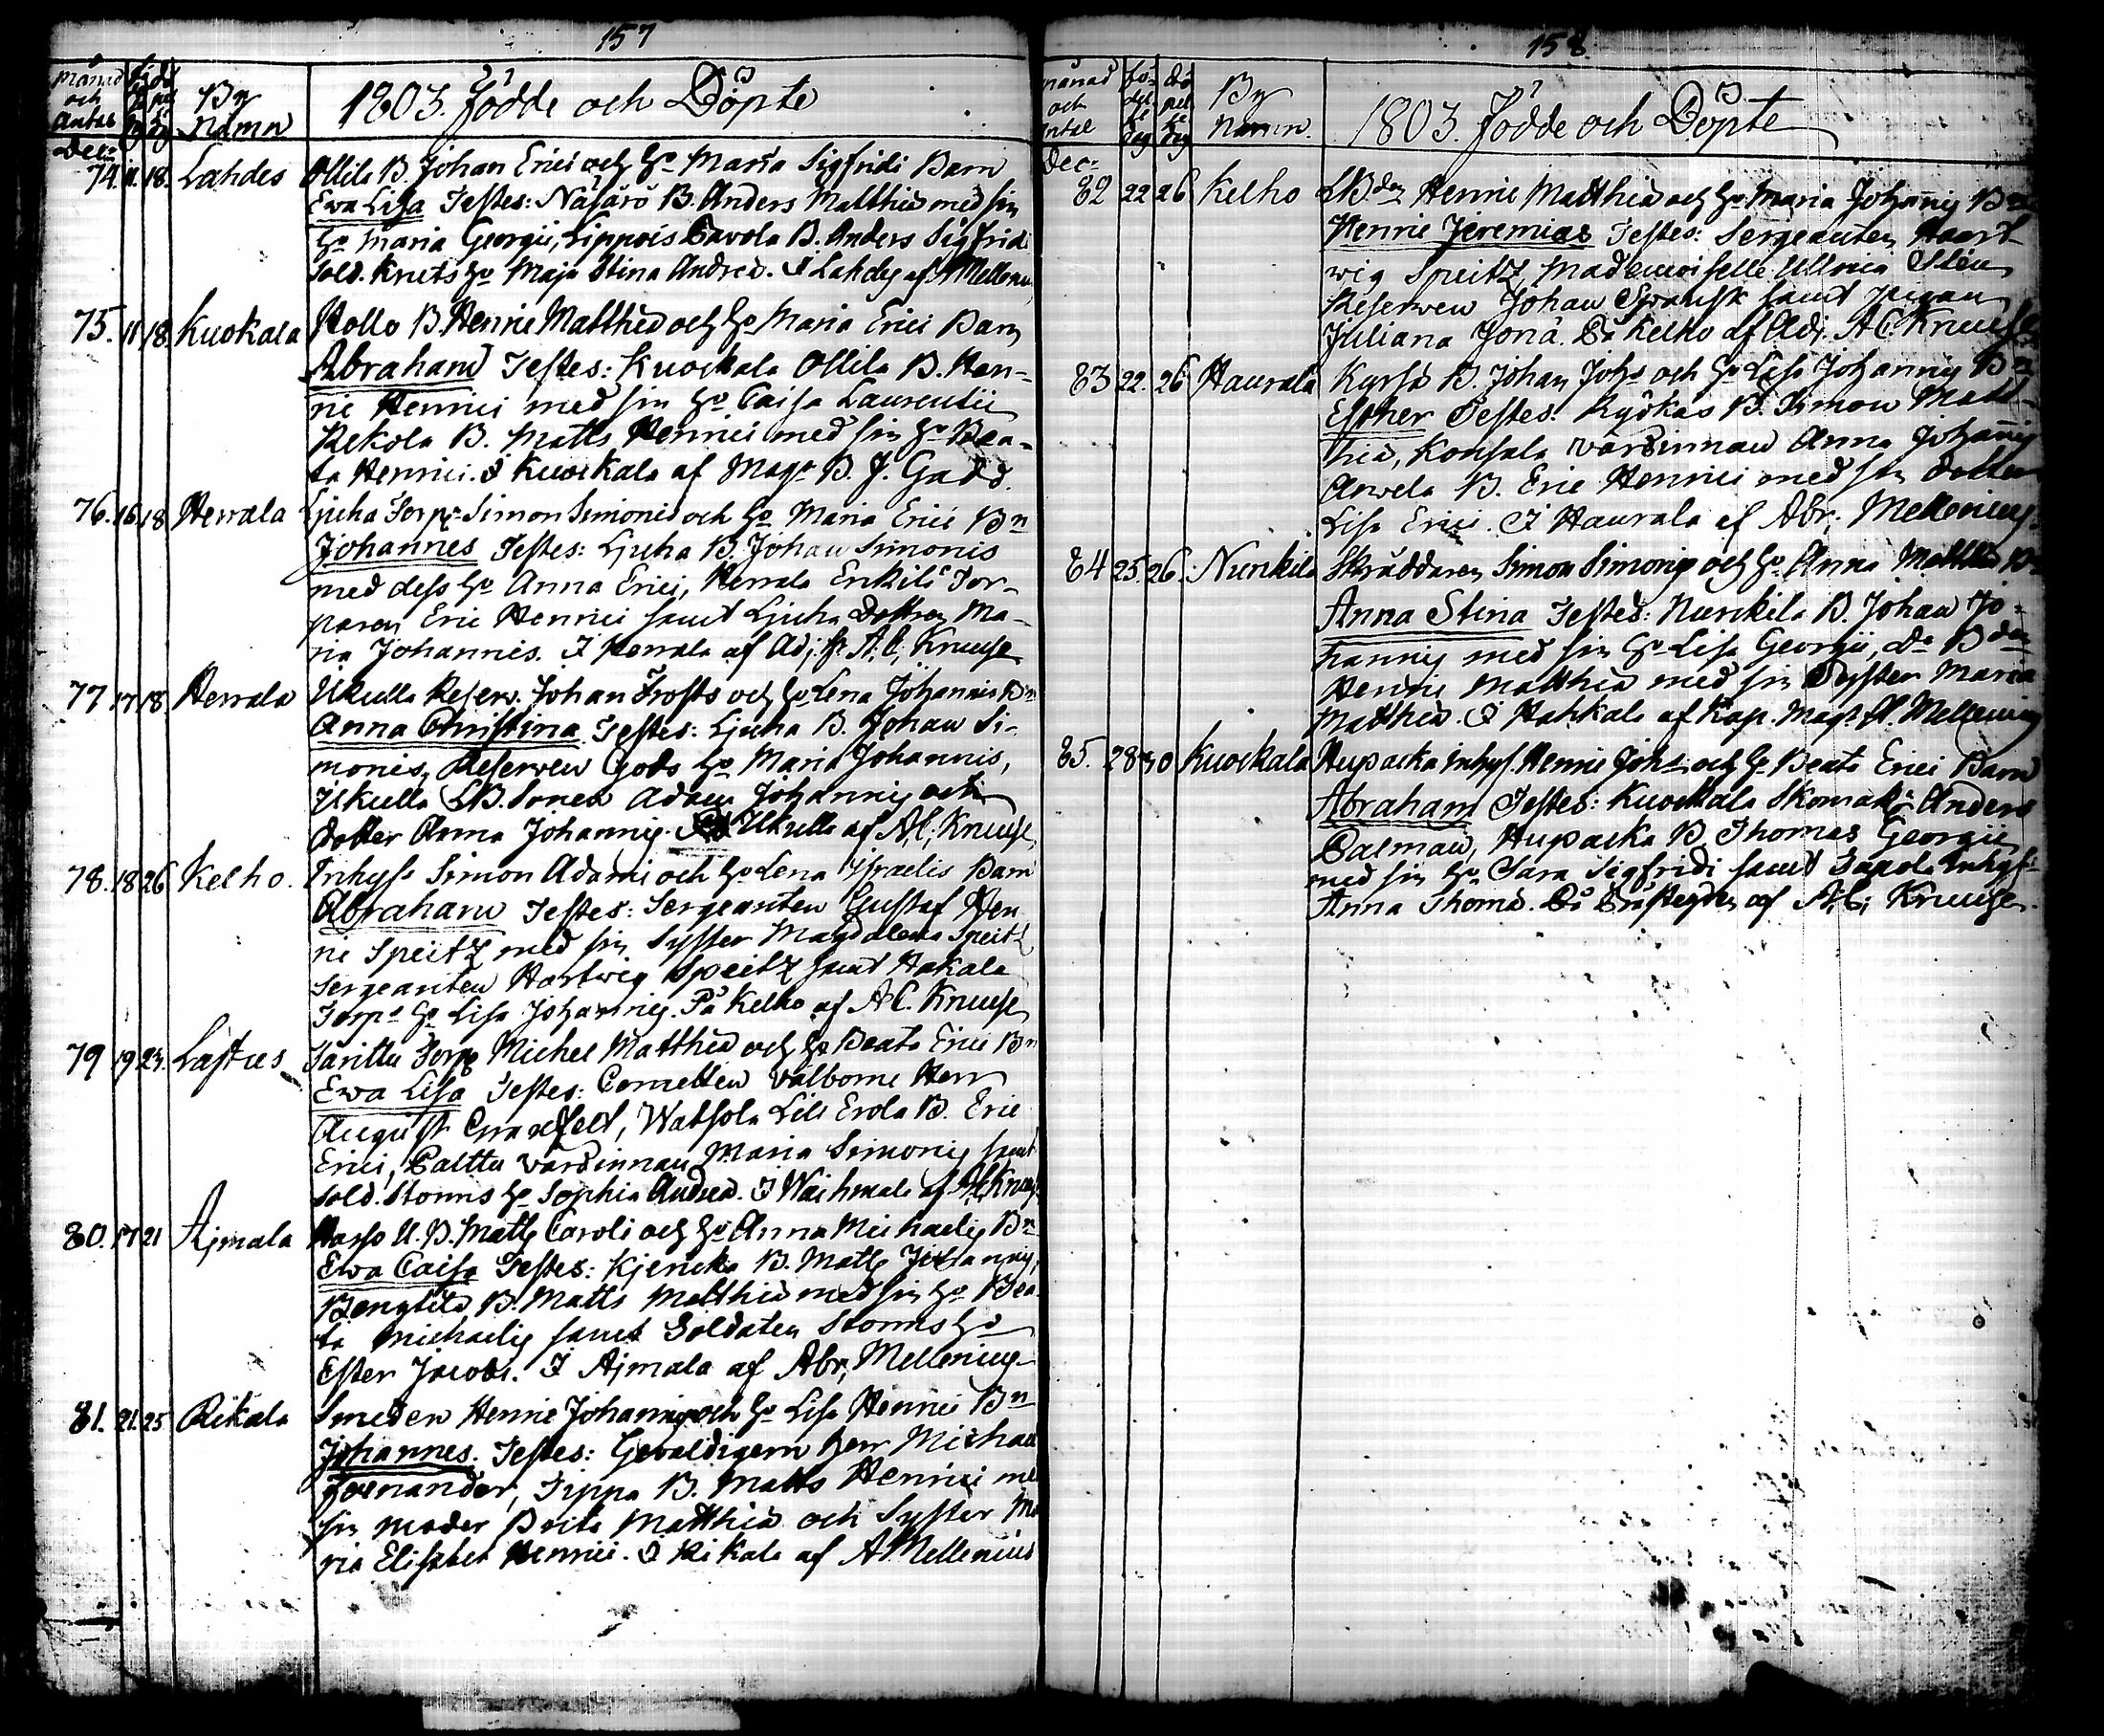 157
Månad och Antal
By Namn
1803. Födde och Döpte
Dec:
74. 11. 18. Lahdes Ollila B. Johan Erici och h:o Maria Sigfridi Barn
Ewa Lisa Testes: Näsärö B. Anders Matthiæ med sin
h:o Maria Georgii, Lippois Cavola B. Anders Sigfridi
Sold. Knuts h:o Maja Stina Andreæ. I Lahdes af A Mellenius
75. 11 18. Kuokala Rollo B. Henric Matthiæ och h:o Maria Erici Barn
Abraham Testes: Kuockala Ollila B. Hen-
ric Henrici med sin h:o Caisa Laurentii
Pekola B. Matts Henrici med sin h:o Bea-
ta Henrici. I Kuockala af Mag:r B. J. Gadd.
76. 16 18 Herrala Ljuha Torp:r Simon Simonis och h:o Maria Erici B:n
Johannes Testes: Ljuha B. Johan Simonis
med dess h:o Anna Erici, Herrala Erkilä Tor-
paren Eric Henrici samt Ljuha Dottren Ma-
ria Johannis. I Herrala af Adj. A. C. Kneuse
77 17 18. Herrala Ukulla Reserv. Johan Frosts och h:o Lena Johannis B:n
Anna Christina Testes: Ljuha B. Johan Si-
monis, Reserven Gods h:o Maria Johannis,
Ukulla LB. Sonen Adam Johannis och
dotter Anna Johannis. Ukulla af A. C. Kneuse
78. 18 26 Kelho. Inhyss Simon Adami och h:o Lena Israelis Barn
Abraham Testes: Sergeanten Gustaf Hen
ric Speitz med sin Syster Magdalena Speitz
Sergeanten Hartwig Speitz samt Hakala
Torp:s h:o Lisa Johannis. På Kelho af A C. Kneuse
79 19 Lastus Sarittu Torp. Michel Matthiæ och h:o Beata Erici B:n
Ewa Lisa Testes: Cornetten Välborne Herr
August, Watsola Lill Erola B. Eric
Erici, Palttu värdinnan Maria Simonis samt
Sold. Storms h:o Sophia Andreæ. I af A C Kneuse
80. 17 21 Ajmala U. B. Matts Caroli och h:o Anna Michaelis B:n
Ewa Caisa Testes: Kjencka B. Matts Johannis,
Bengtilä B. Matts Matthiæ med sin h:o Bea-
ta Michaelis samt Soldaten Storms h:o
Ester Jacobi. I Ajmala af Abr. Mellenius
81. 21. 25 Rikala Smeden Henric Johannis och h:o Lisa Henrici B:n
Johannes. Testes: Gevaldigern Herr Michael
Fornander, Tippa B. Matts Henrici med
sin moder Brita Matthiæ och Syster Ma
ria Elisabet Henrici. I Rikala af A Mellenius
158
månad och Antal
födelse Dag
döpelse Dag
By Namn.
1803. Födde och Döpte
Dec:
82 22 26 Kelho LB:den Henric Matthiæ och h:o Maria Johannis B:n
Henric Jeremias Testes: Sergeanten Haart-
wig Speitz, Mademoiselle Ullrica Sten
Reserven Johan Swansk samt pigan
Juliana Jonæ. På Kelho af Adj. A C. Kneuse
83 22. 26 Haurala Kyrsä B. Johan Joh:s och h:o Lisa Johannis B:n
Esther Testes: Kyökäs B. Simon Matt-
hiæ, Konsala värdinnan Anna Johannis
Anvela B. Eric Henrici med sin dotter
Lisa Erici. I Haurala af Abr. Mellenius.
84 25. 26. Nunkila Skräddaren Simon Simonis och h:o Anna Matthiæ B:n
Anna Stina Testes: Nunkila B. Johan Jo-
hannis med sin h:o Lisa Georgii, d:o B:den
Henric Matthiæ med sin Syster Maria
Matthiæ. I Hahkala af Kap. Mag:r A. Mellenius
85. 28 30 Kuockala Hupacka inhys. Henric Joh:s och h:o Beata Erici Barn
Abraham Testes: Kuockala Skomak:n Anders
Palman, Hupacka B. Thomas Georgii
med sin h:o Sara Sigfridi samt Inhys:
Anna Thomæ. På Prästegden af A. C. Kneuse.